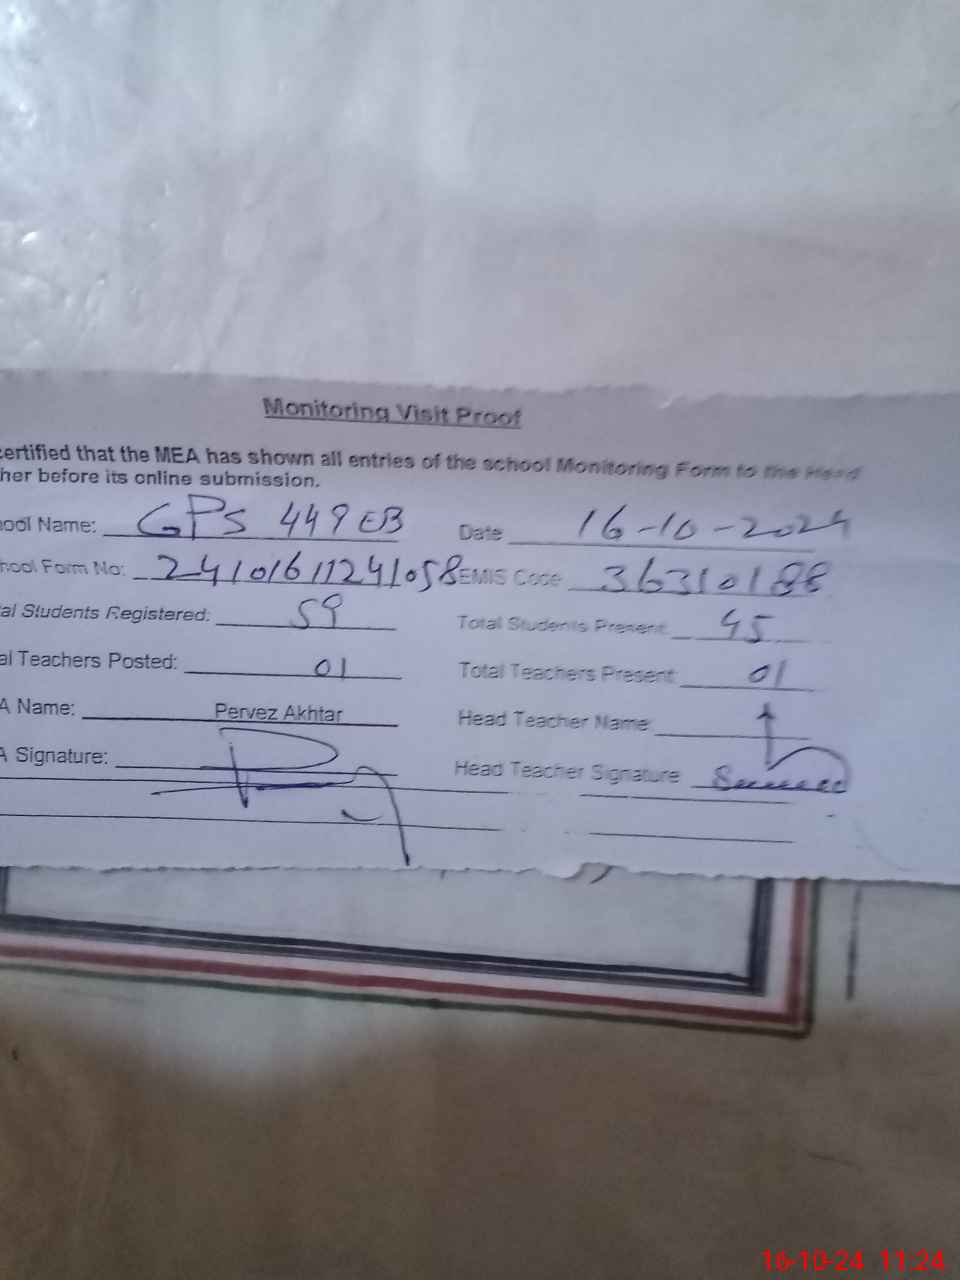 Monitoring Visit Proof
certified that the MEA has shown all entries of the school Monitoring Form to the Head
her before its online submission.
ool Name: GPS 449 EB Date 16-10-2024
hool Form No: 24101611241058 EMIS Code 36310188
al Students Registered: 59 Total Students Present: 45
al Teachers Posted: 01 Total Teachers Present: 01
A Name: Pervez Akhtar Head Teacher Name
A Signature: Head Teacher Signature
16-10-24 11:24